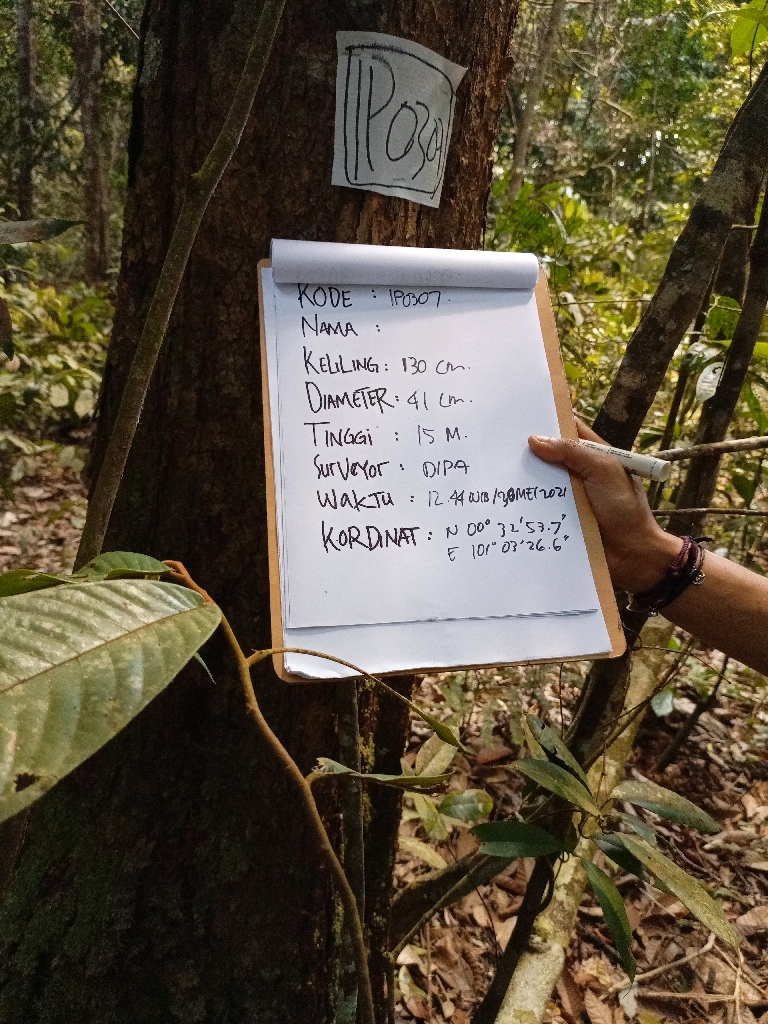 IP0307
KODE : IP0307.
NAMA :
KELILING : 130 cm.
DIAMETER : 41 cm.
TINGGI : 15 M.
SURVEYOR : DIPA
WAKTU : 12.44 WIB / 30 MEI 2021
KORDINAT : N 00° 32' 53.7"
E 101° 03' 26.6"